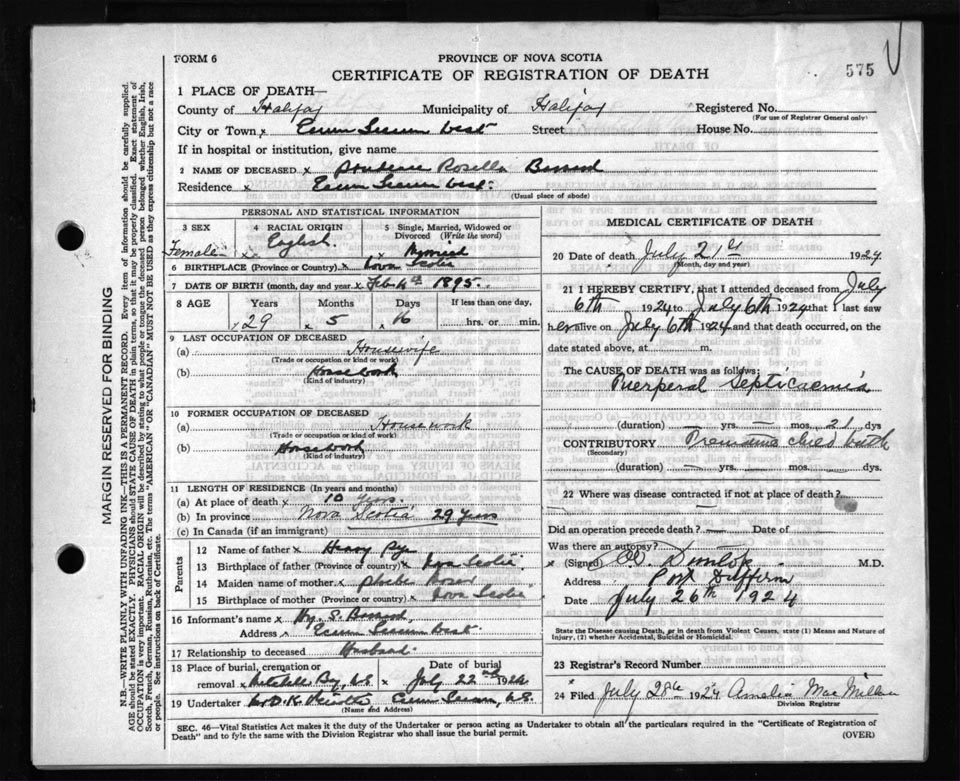 FORM 6
PROVINCE OF NOVA SCOTIA
CERTIFICATE OF REGISTRATION OF DEATH
575
1 PLACE OF DEATH—
County of Halifax Municipality of Halifax Registered No.
(For use of Registrar General only)
City or Town x Ecum Secum West Street House No.
If in hospital or institution, give name
2 NAME OF DECEASED x Prudence Rosella
Residence x Ecum Secum West.
(Usual place of abode)
PERSONAL AND STATISTICAL INFORMATION
3 SEX 4 RACIAL ORIGIN 5 Single, Married, Widowed or Divorced (Write the word)
Female x English. x Married
6 BIRTHPLACE (Province or Country) x Nova Scotia
7 DATE OF BIRTH (month, day and year) x 1895.
8 AGE Years Months Days If less than one day,
x 29 x 5 x 16 hrs. or min.
9 LAST OCCUPATION OF DECEASED
(a) Housewife
(Trade or occupation or kind or work)
(b) Housework
(Kind of industry)
10 FORMER OCCUPATION OF DECEASED
(a) Housework
(Trade or occupation or kind of work)
(b) Housework
(Kind of industry)
11 LENGTH OF RESIDENCE (In years and months)
(a) At place of death x 10 Years.
(b) In province Nova Scotia 29 Years
(c) In Canada (if an immigrant)
Parents
12 Name of father x Henry Pye
13 Birthplace of father (Province or country) x Nova Scotia
14 Maiden name of mother x Phoebe
15 Birthplace of mother (Province or country) x Nova Scotia
16 Informant's name x Wm. S.
Address x Ecum Secum West.
17 Relationship to deceased Husband
18 Place of burial, cremation or removal x Bay, N.S. Date of burial x July 22nd 1924
19 Undertaker x Ecum Secum, N.S.
(Name and Address)
MEDICAL CERTIFICATE OF DEATH
20 Date of death July 21st 1924
(Month, day and year)
21 I HEREBY CERTIFY, that I attended deceased from July
6th 1924 to July 6th 1924 that I last saw
her alive on July 6th 1924 and that death occurred, on the
date stated above, at m.
The CAUSE OF DEATH was as follows:
Puerperal Septicaemia
(duration) — yrs. — mos. 21 dys
CONTRIBUTORY Premature child birth
(Secondary)
(duration) — yrs. mos. dys.
22 Where was disease contracted if not at place of death?
Did an operation precede death? — Date of
Was there an autopsy?
x (Signed) Dunlop M.D.
Address Port Dufferin
Date July 26th 1924
State the Disease causing Death, or in death from Violent Causes, state (1) Means and Nature of
Injury, (2) whether Accidental, Suicidal or Homicidal.
23 Registrar's Record Number
24 Filed July 28th 1924 Amelia MacMillan
Division Registrar
SEC. 46—Vital Statistics Act makes it the duty of the Undertaker or person acting as Undertaker to obtain all the particulars required in the "Certificate of Registration of
Death" and to fyle the same with the Division Registrar who shall issue the burial permit.
(OVER)
MARGIN RESERVED FOR BINDING
N.B.—WRITE PLAINLY WITH UNFADING INK—THIS IS A PERMANENT RECORD. Every item of information should be carefully supplied.
AGE should be stated EXACTLY. PHYSICIANS should STATE CAUSE OF DEATH in plain terms, so that it may be properly classified. Exact statement of
OCCUPATION is very important. RACIAL ORIGIN will be described by stating to what people or tongue the deceased person belonged whether English, Irish,
Scotch, French, German, Russian, Ruthenian, etc. The terms "AMERICAN" or "CANADIAN" MUST NOT BE USED as they express citizenship but not a race
or people. See instructions on back of Certificate.